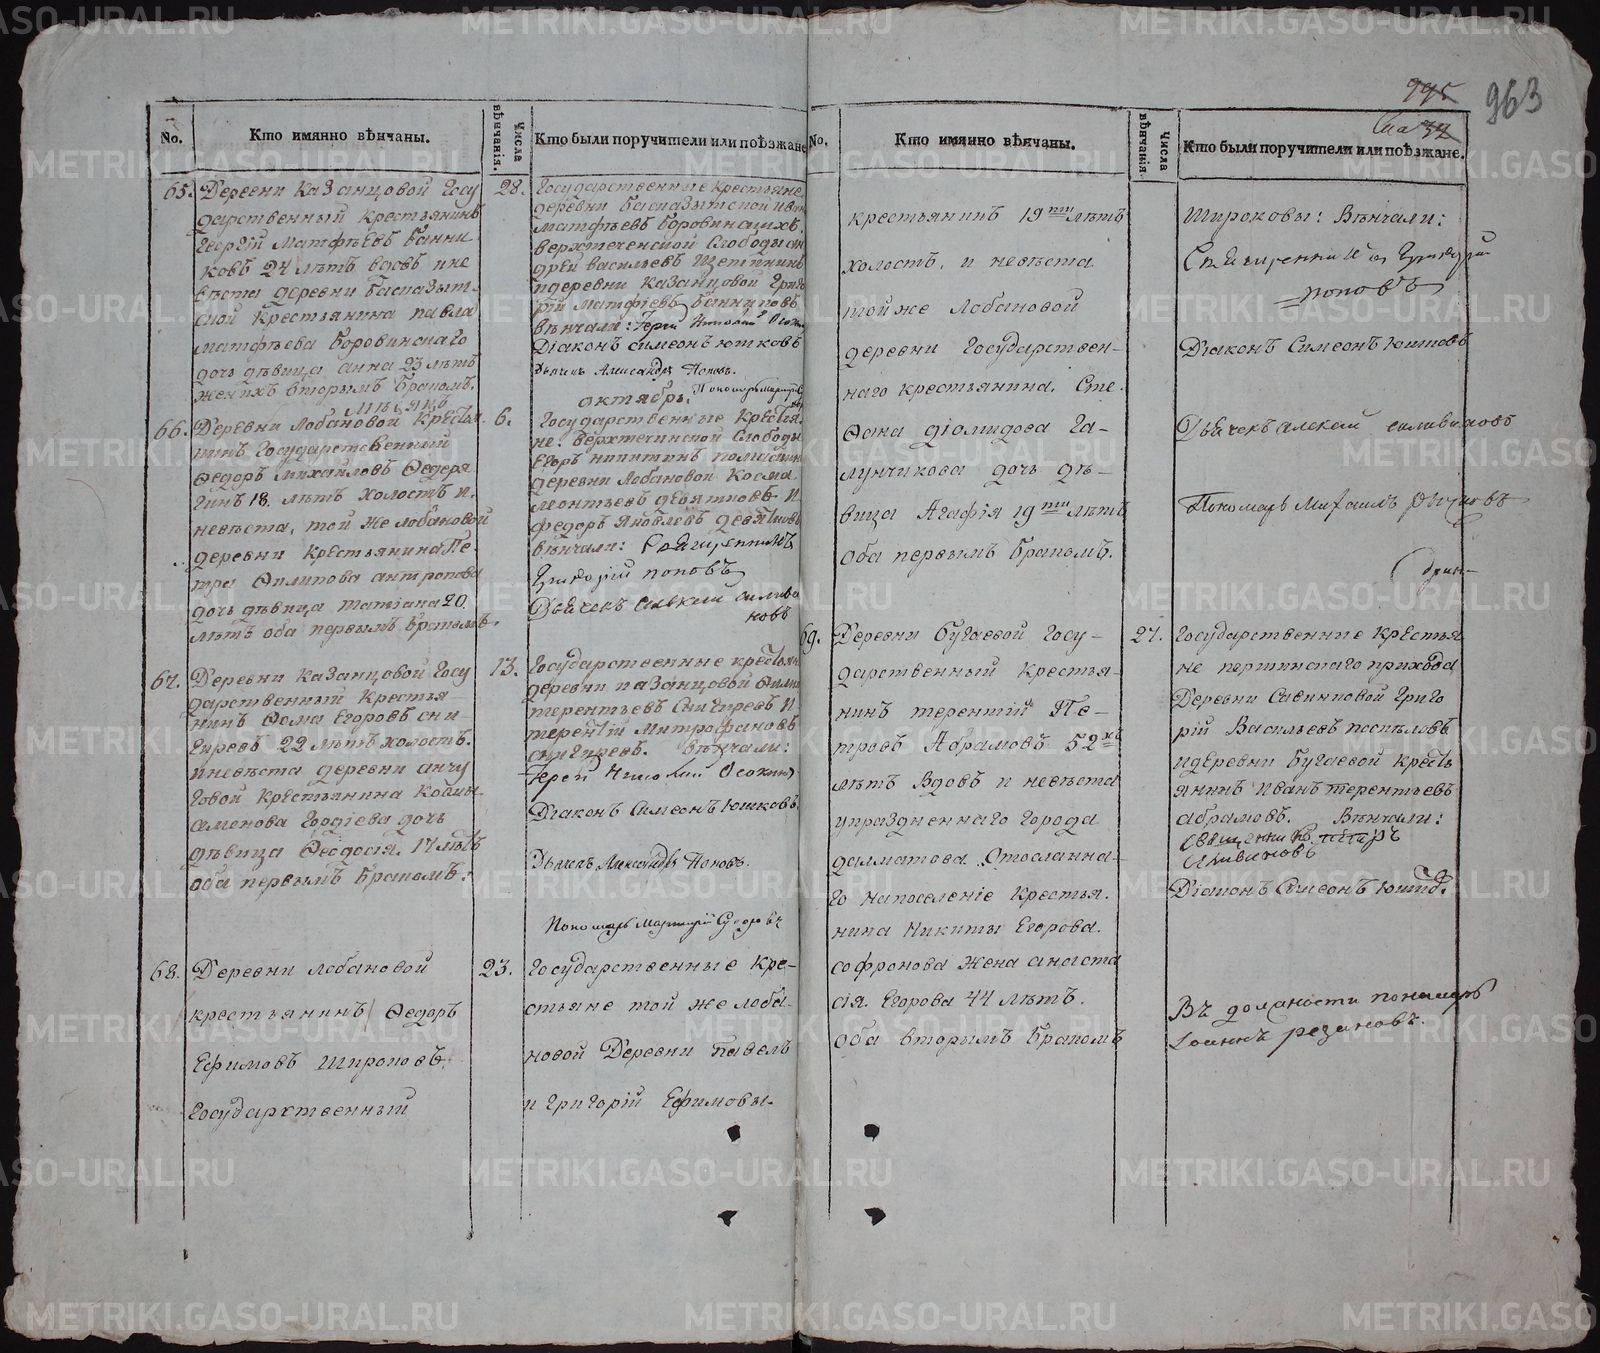 995
963
No.
Кто имянно вѣнчаны.
Числа вѣнчанія.
Кто были поручители или поѣзжане
65.
Деревни Казанцовой Госу
дарственный крестьянинъ
Георгій Матфѣевъ Банни
ковъ 24 лѣтъ вдовъ и не
вѣста деревни
ской крестьянина Павла
Матфѣева Боровинскаго
дочь дѣвица Анна 23 лѣтъ
женихъ вторымъ бракомъ.
28.
Государственные крестьяне
деревни
Матфѣевъ Боровинскихъ
Верхтеченской Слободы Ан
дрей Васильевъ Щетининъ
и деревни Казанцовой Григо
рій Матфіевъ Банниковъ
вѣнчали: Іерей Николай
Діаконъ Симеонъ Юшковъ
Дьячекъ Александръ Поповъ.
Пономарь
октябрь.
66.
Деревни Лобановой Крестья
нинъ Государственный
Федоръ Михаиловъ Федеря
гинъ 18. лѣтъ холостъ и
невѣста, той же Лобановой
деревни крестьянина Пе-
тра Филипова Антропова
дочь дѣвица Татіана 20.
лѣтъ оба первымъ бракомъ.
6.
Государственные Крестья
не. Верхтечинской Слободы
Егоръ Никитинъ
деревни Лобановой Косма
Леонтьевъ Девятковъ и
Федоръ Яковлевъ Девятковъ
вѣнчали: Священникъ
Григорій Поповъ
Дьячекъ Алексѣй Силива
новъ
67.
Деревни Казанцовой Госу
дарственный Крестья-
нинъ Фома Егоровъ Сни-
гиревъ 22 лѣтъ холостъ.
и невѣста деревни Анчу
говой Крестьянина Козмы
Семенова Гордіева дочь
дѣвица Феодосія. 17 лѣтъ
оба первымъ бракомъ:
13.
Государственные крестьян
деревни Казанцовой Филип
Терентьевъ Снигиревъ и
Терентій Митрофановъ
Снигиревъ. Вѣнчали:
Іерей Николай Осокинъ
Діаконъ Симеонъ Юшковъ
Дьячекъ Александръ Поповъ.
Пономарь
68.
Деревни Лобановой
крестьянинъ Федоръ
Ефимовъ Широковъ.
Государственный
23.
Государственные кре-
стьяне той же Лоба-
новой Деревни Павелъ
и Григорій Ефимовы-
No.
Кто имянно вѣнчаны.
Числа вѣнчанія.
Кто были поручители или поѣзжане.
крестьянинъ 19ти лѣтъ
холостъ, и невѣста
той же Лобановой
деревни Государствен-
наго крестьянина, Сте-
фана Діомидова Га-
лунчикова дочь дѣ-
вица Агафія 19ти лѣтъ
оба первымъ бракомъ.
Широковы: Вѣнчали:
Священникъ Григорій
Поповъ
Діаконъ Симеонъ Юшковъ
Дьячекъ Алексѣй Силивановъ
Пономарь Михаилъ
69.
Деревни Бугаевой Госу-
дарственный крестья-
нинъ Терентій Пе-
тровъ Абрамовъ 52хъ
лѣтъ вдовъ и невѣста
упраздненнаго города
Далматова Отосланна-
го на поселеніе Крестья-
нина Никиты Егорова.
Софронова жена Анаста
сія. Егорова 44 лѣтъ.
Оба вторымъ бракомъ
27.
Государственные крестья
не Першинскаго прихода
Деревни Савинковой Григо
рій Васильевъ Поспѣловъ
и деревни Бугаевой кресть
янинъ Иванъ Терентьевъ
Абрамовъ. Вѣнчали:
Священникъ Петръ
Силивановъ
Діаконъ Симеонъ Юшковъ
Въ должности пономаря
Іоаннъ Резановъ.